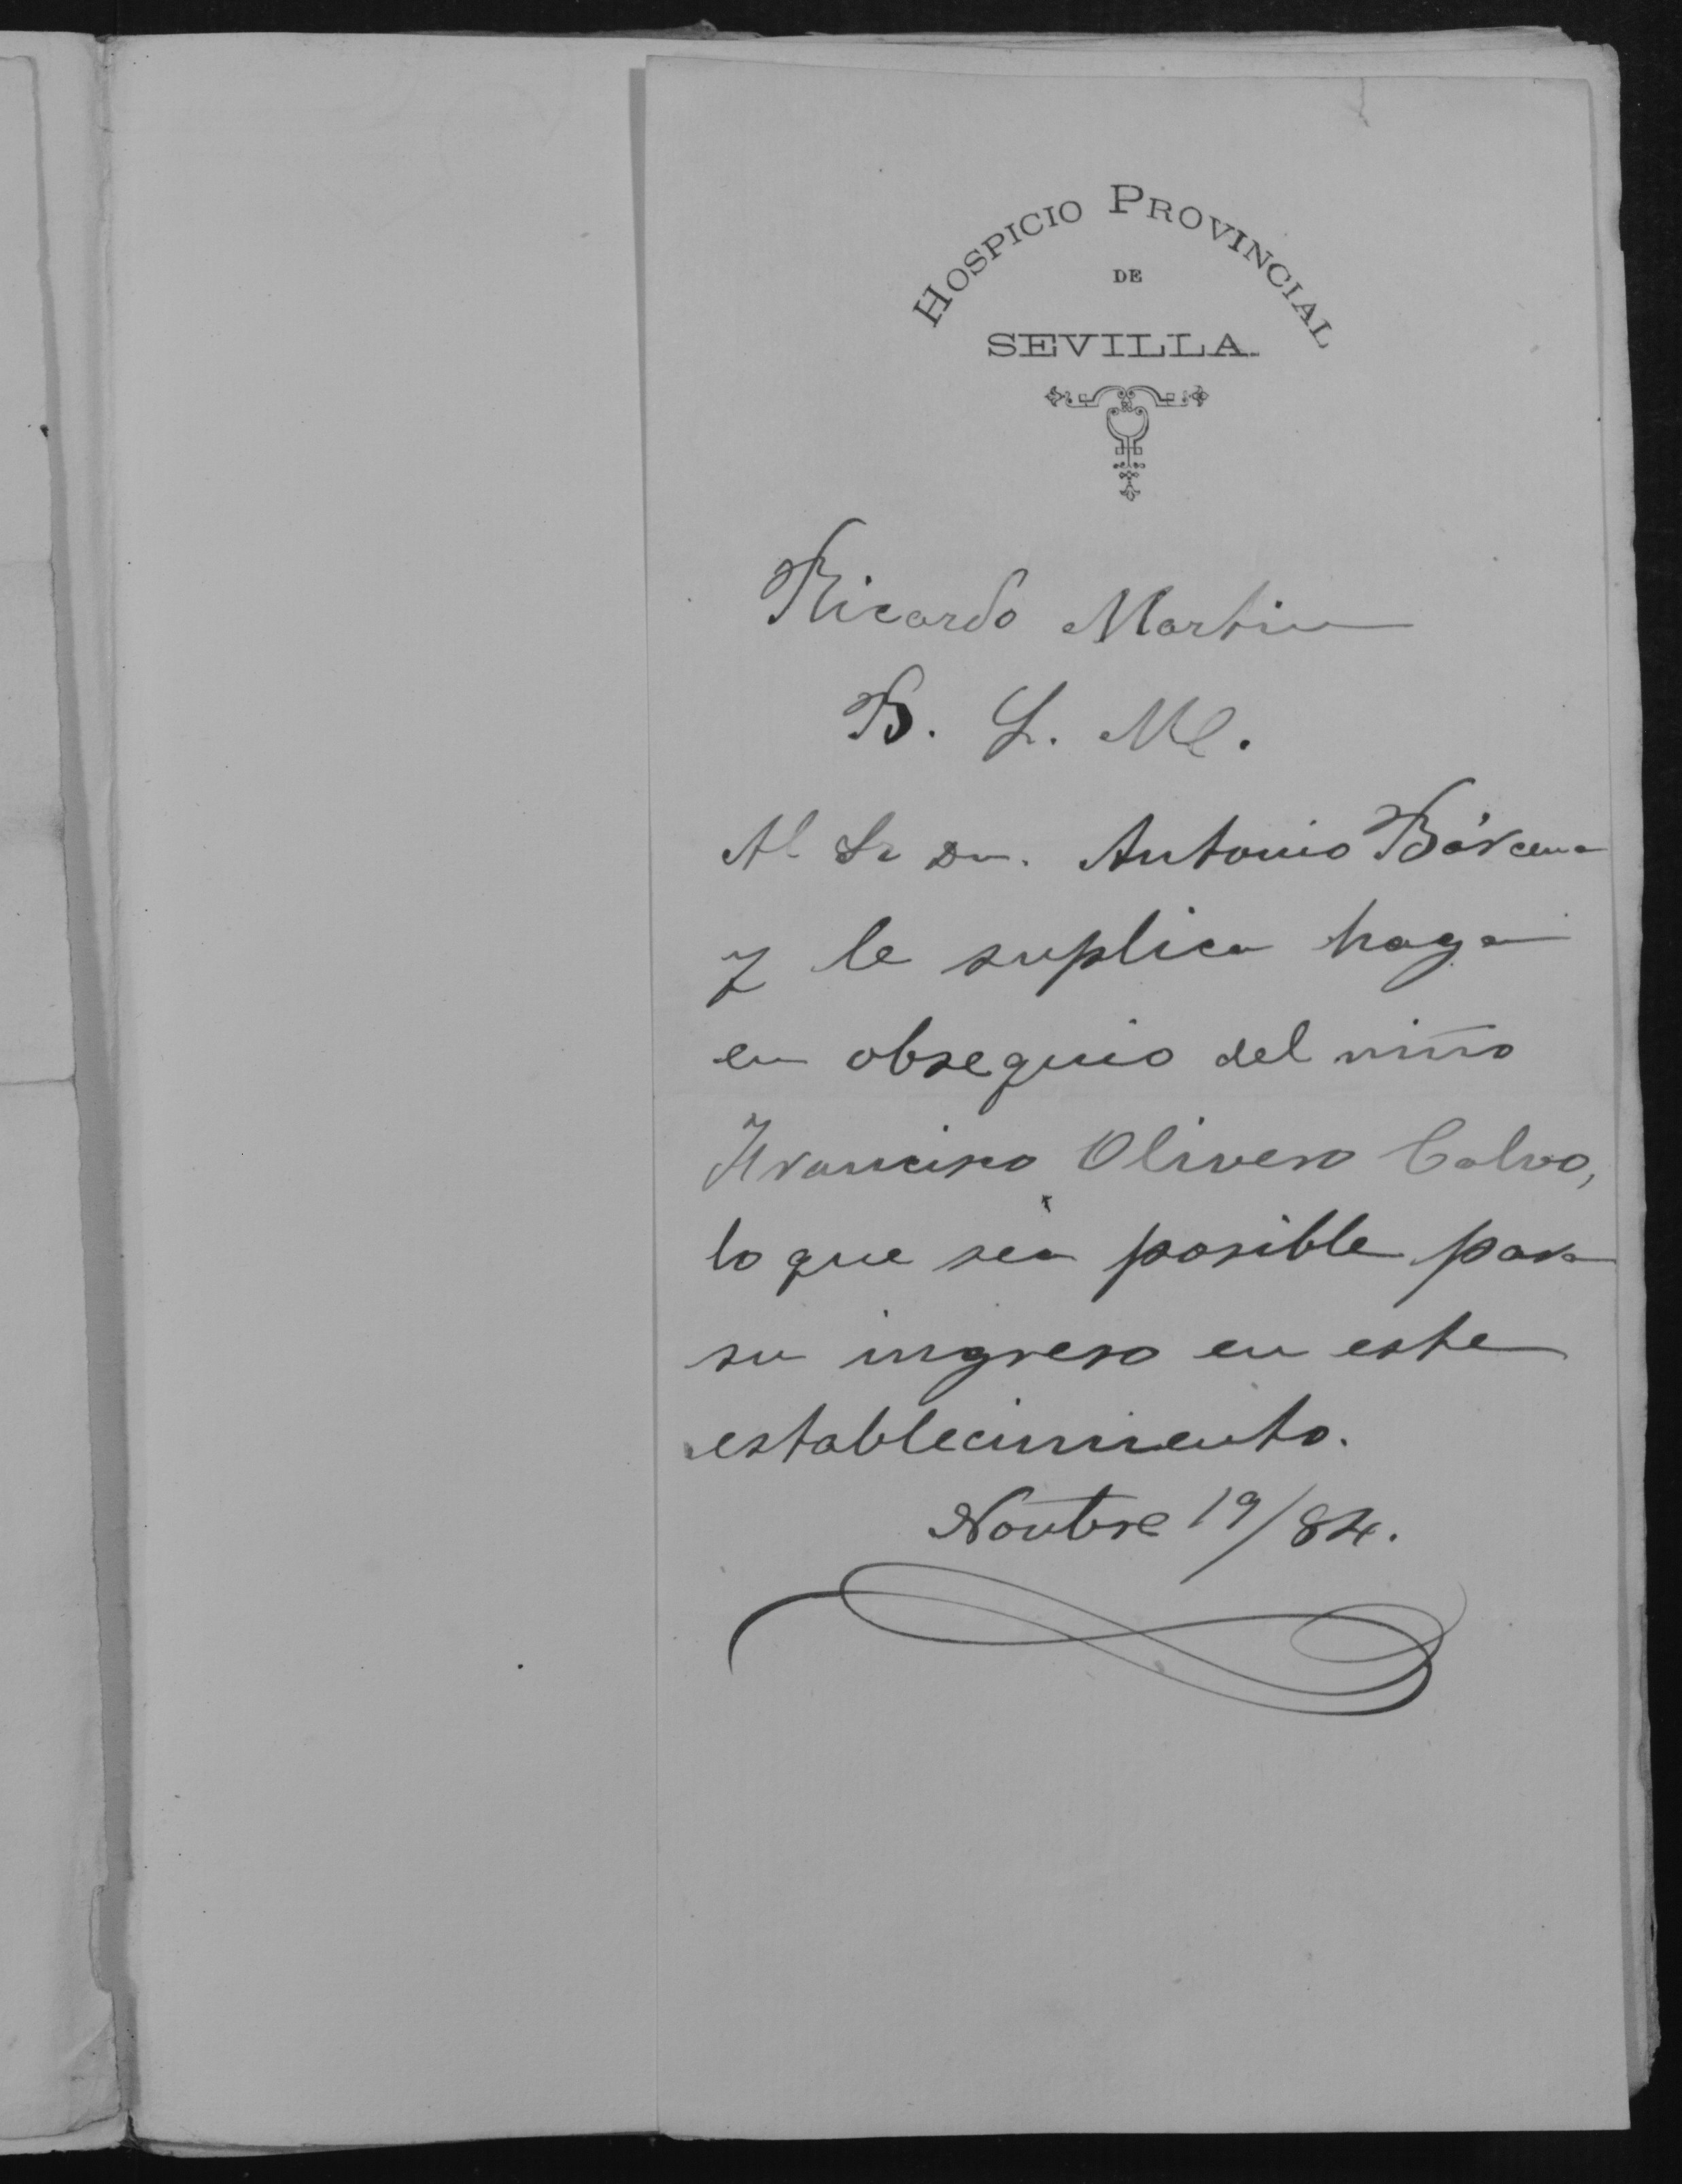 HOSPICIO PROVINCIAL
DE
SEVILLA.
Ricardo Martin
B. L. M.
Al Sr Dn. Antonio Bárcena
y le suplica haga
en obsequio del niño
Francisco Olivero Calvo,
lo que sea posible para
su ingreso en este
establecimiento.
Novbre 19/84.